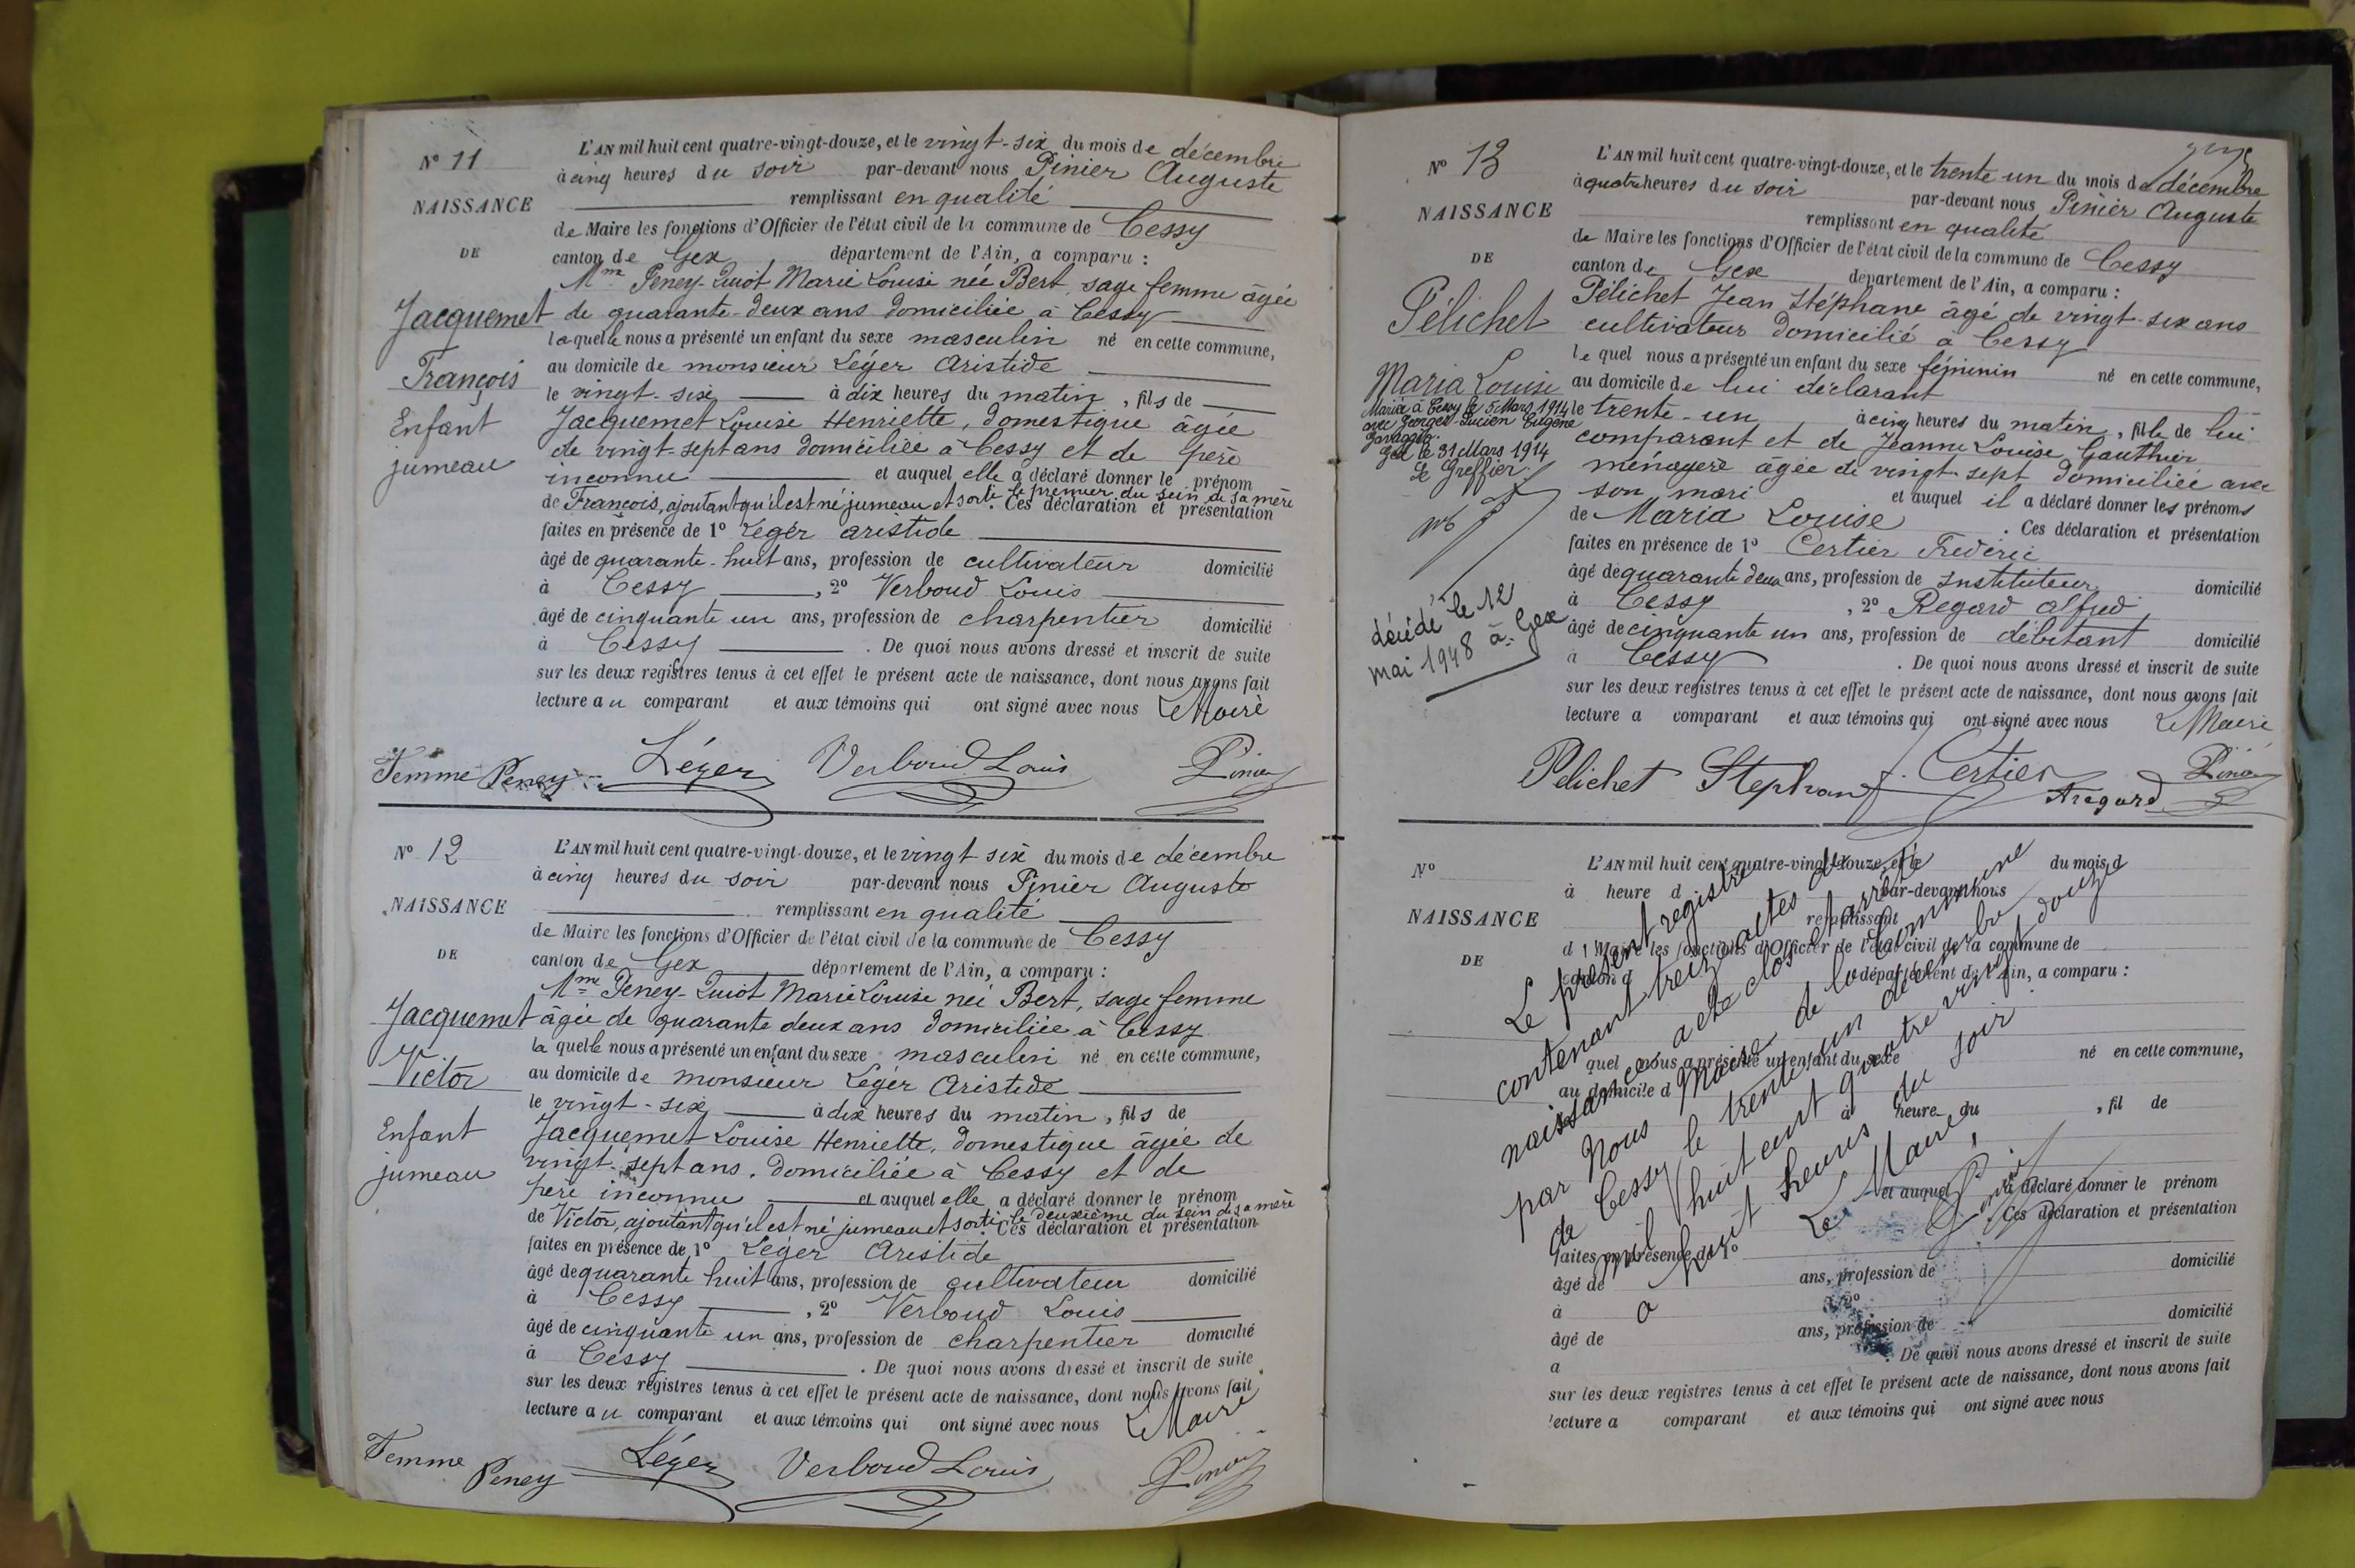 N° 11
NAISSANCE
DE
Jacquemet
François
Enfant
jumeau
L'AN mil huit cent quatre-vingt-douze, et le vingt-six du mois de décembre
à cinq heures du soir par-devant nous Pinier Auguste
remplissant en qualité
de Maire les fonctions d'Officier de l'état civil de la commune de Cessy
canton de Gex, département de l'Ain, a comparu :
Mme Peney-Quiot Marie Louise née Bert, sage femme âgée
de quarante-deux ans domiciliée à Cessy
laquelle nous a présenté un enfant du sexe masculin né en cette commune,
au domicile de monsieur Léger Aristide
le vingt-six à dix heures du matin, fils de
Jacquemet Louise Henriette, domestique âgée
de vingt-sept ans domiciliée à Cessy et de père
inconnu et auquel elle a déclaré donner le prénom
de François, ajoutant qu'il est né jumeau et sorti le premier du sein de sa mère. Ces déclaration et présentation
faites en présence de 1° Léger aristide
âgé de quarante-huit ans, profession de cultivateur domicilié
à Cessy, 2° Verboud Louis
âgé de cinquante un ans, profession de charpentier domicilié
à Cessy. De quoi nous avons dressé et inscrit de suite
sur les deux registres tenus à cet effet le présent acte de naissance, dont nous avons fait
lecture au comparant et aux témoins qui ont signé avec nous Le Maire
Femme Peney Léger Verboud Louis Pinier
N° 12
NAISSANCE
DE
Jacquemet
Victor
Enfant
jumeau
L'AN mil huit cent quatre-vingt-douze, et le vingt six du mois de décembre
à cinq heures du soir par-devant nous Pinier Auguste
remplissant en qualité
de Maire les fonctions d'Officier de l'état civil de la commune de Cessy
canton de Gex département de l'Ain, a comparu :
Mme Peney-Quiot Marie Louise née Bert, sage femme
âgée de quarante deux ans domiciliée à Cessy
laquelle nous a présenté un enfant du sexe masculin né en cette commune,
au domicile de monsieur Léger Aristide
le vingt-six à dix heures du matin, fils de
Jacquemet Louise Henriette, domestique âgée de
vingt-sept ans, domiciliée à Cessy et de
père inconnu et auquel elle a déclaré donner le prénom
de Victor, ajoutant qu'il est né jumeau et sorti le deuxième du sein de sa mère. Ces déclaration et présentation
faites en présence de 1° Léger Aristide
âgé de quarante huit ans, profession de cultivateur domicilié
à Cessy, 2° Verboud Louis
âgé de cinquante un ans, profession de charpentier domicilié
à Cessy. De quoi nous avons dressé et inscrit de suite
sur les deux registres tenus à cet effet le présent acte de naissance, dont nous avons fait
lecture au comparant et aux témoins qui ont signé avec nous Le Maire
Femme Peney Léger Verboud Louis Pinier
N° 13
NAISSANCE
DE
Pélichet
Maria Louise
Mariée à Cessy le 5 Mars 1914
avec Georges Lucien Eugène
Gex le 31 Mars 1914
Le Greffier
décédé le 12
mai 1948 à Gex
L'AN mil huit cent quatre-vingt-douze, et le trente un du mois de décembre
à quatre heures du soir par-devant nous Pinier Auguste
remplissant en qualité
de Maire les fonctions d'Officier de l'état civil de la commune de Cessy
canton de Gex département de l'Ain, a comparu :
Pélichet Jean Stéphane âgé de vingt-six ans
cultivateur domicilié à Cessy
lequel nous a présenté un enfant du sexe féminin né en cette commune,
au domicile de lui déclarant
le trente-un à cinq heures du matin, fille de lui
comparant et de Jeanne Louise Gauthier
ménagère âgée de vingt-sept domiciliée avec
son mari et auquel il a déclaré donner les prénoms
de Maria Louise. Ces déclaration et présentation
faites en présence de 1° Certier Frédéric
âgé de quarante deux ans, profession de instituteur domicilié
à Cessy, 2° Regard alfred
âgé de cinquante un ans, profession de débitant domicilié
à Cessy. De quoi nous avons dressé et inscrit de suite
sur les deux registres tenus à cet effet le présent acte de naissance, dont nous avons fait
lecture a comparant et aux témoins qui ont signé avec nous Le Maire
Pelichet Stephane Certier Aregard Pinier
N°
NAISSANCE
DE
L'AN mil huit cent quatre-vingt-douze, et le du mois d
à heure d par-devant nous
remplissant
d Maire les fonctions d'Officier de l'état civil de la commune de
canton d département de l'Ain, a comparu :
quel nous a présenté un enfant du sexe né en cette commune,
au domicile d
à heure du, fil de
et auquel a déclaré donner le prénom
Ces déclaration et présentation
faites en présence de 1°
âgé de ans, profession de domicilié
à 2°
âgé de ans, profession de domicilié
a. De quoi nous avons dressé et inscrit de suite
sur les deux registres tenus à cet effet le présent acte de naissance, dont nous avons fait
lecture a comparant et aux témoins qui ont signé avec nous
Le présent registre
contenant treize actes de
naissances a été clos et arrêté
par Nous Maire de la Commune
de Cessy le trente un décembre
mil huit cent quatre vingt douze
à huit heures du soir
Le Maire,
Pinier